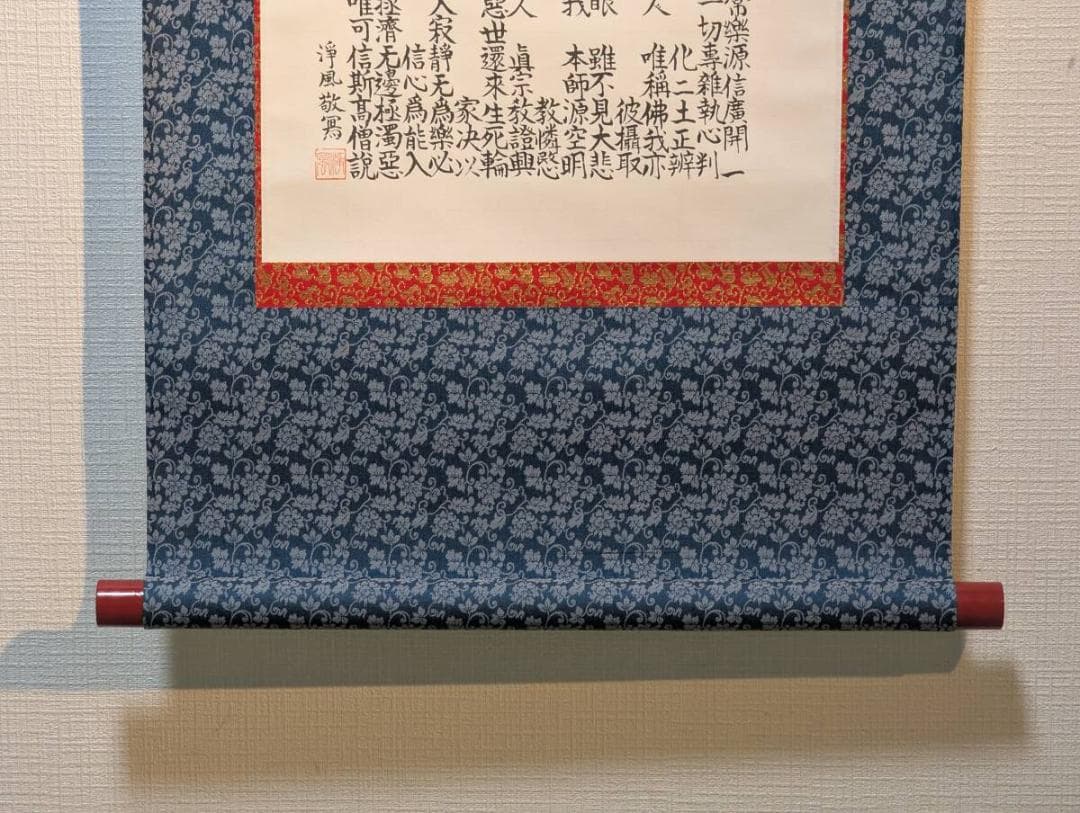 常樂源信廣開 一
一切專雜執心判
化二土正辨
人 唯稱佛我亦
彼攝取
眼 雖不見大悲
我 本師源空明
教憐愍
人 眞宗教證興
愍世還來生死輪
家决以
入寂靜无爲樂必
信心爲能入
拯濟无邊極濁惡
唯可信斯髙僧説
淨風敬寫